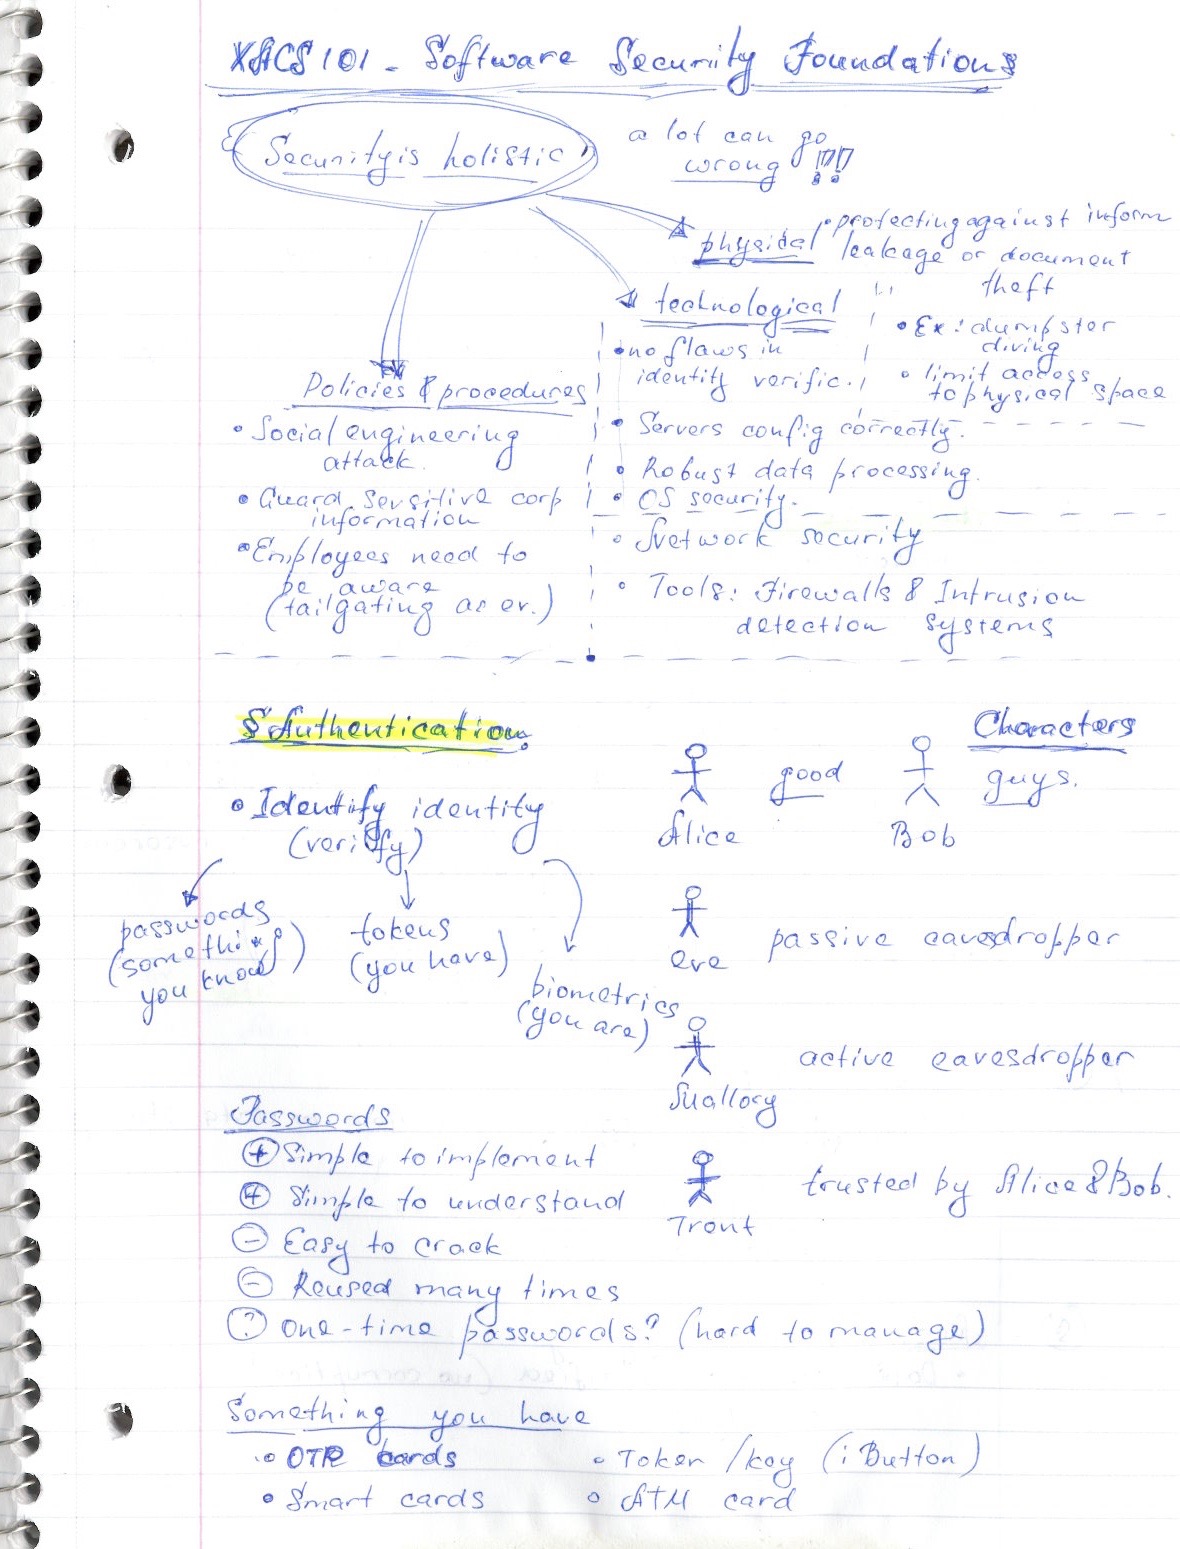 XACS101 - Software Security Foundations
Security is holistic
a lot can go
wrong !!!
physical
• protecting against inform
leakage or document
theft
• Ex: dumpster
diving
• limit access
to physical space
technological
• no flaws in
identity verific.
• Servers config correctly.
• Robust data processing.
• OS security.
• Network security
• Tools: Firewalls & Intrusion
detection systems
Policies & procedures
• Social engineering
attack.
• Guard sensitive corp
information
• Employees need to
be aware
(tailgating as ex.)
§ Authentication.
• Identify identity
(verify)
passwords
(something
you know)
tokens
(you have)
biometrics
(you are)
Characters
good guys.
Alice
Bob
eve
passive eavesdropper
Mallory
active eavesdropper
Trent
trusted by Alice & Bob.
Passwords
+ Simple to implement
+ Simple to understand
- Easy to crack
- Reused many times
? One-time passwords? (hard to manage)
Something you have
• OTP cards
• Smart cards
• Token / key (iButton)
• ATM card